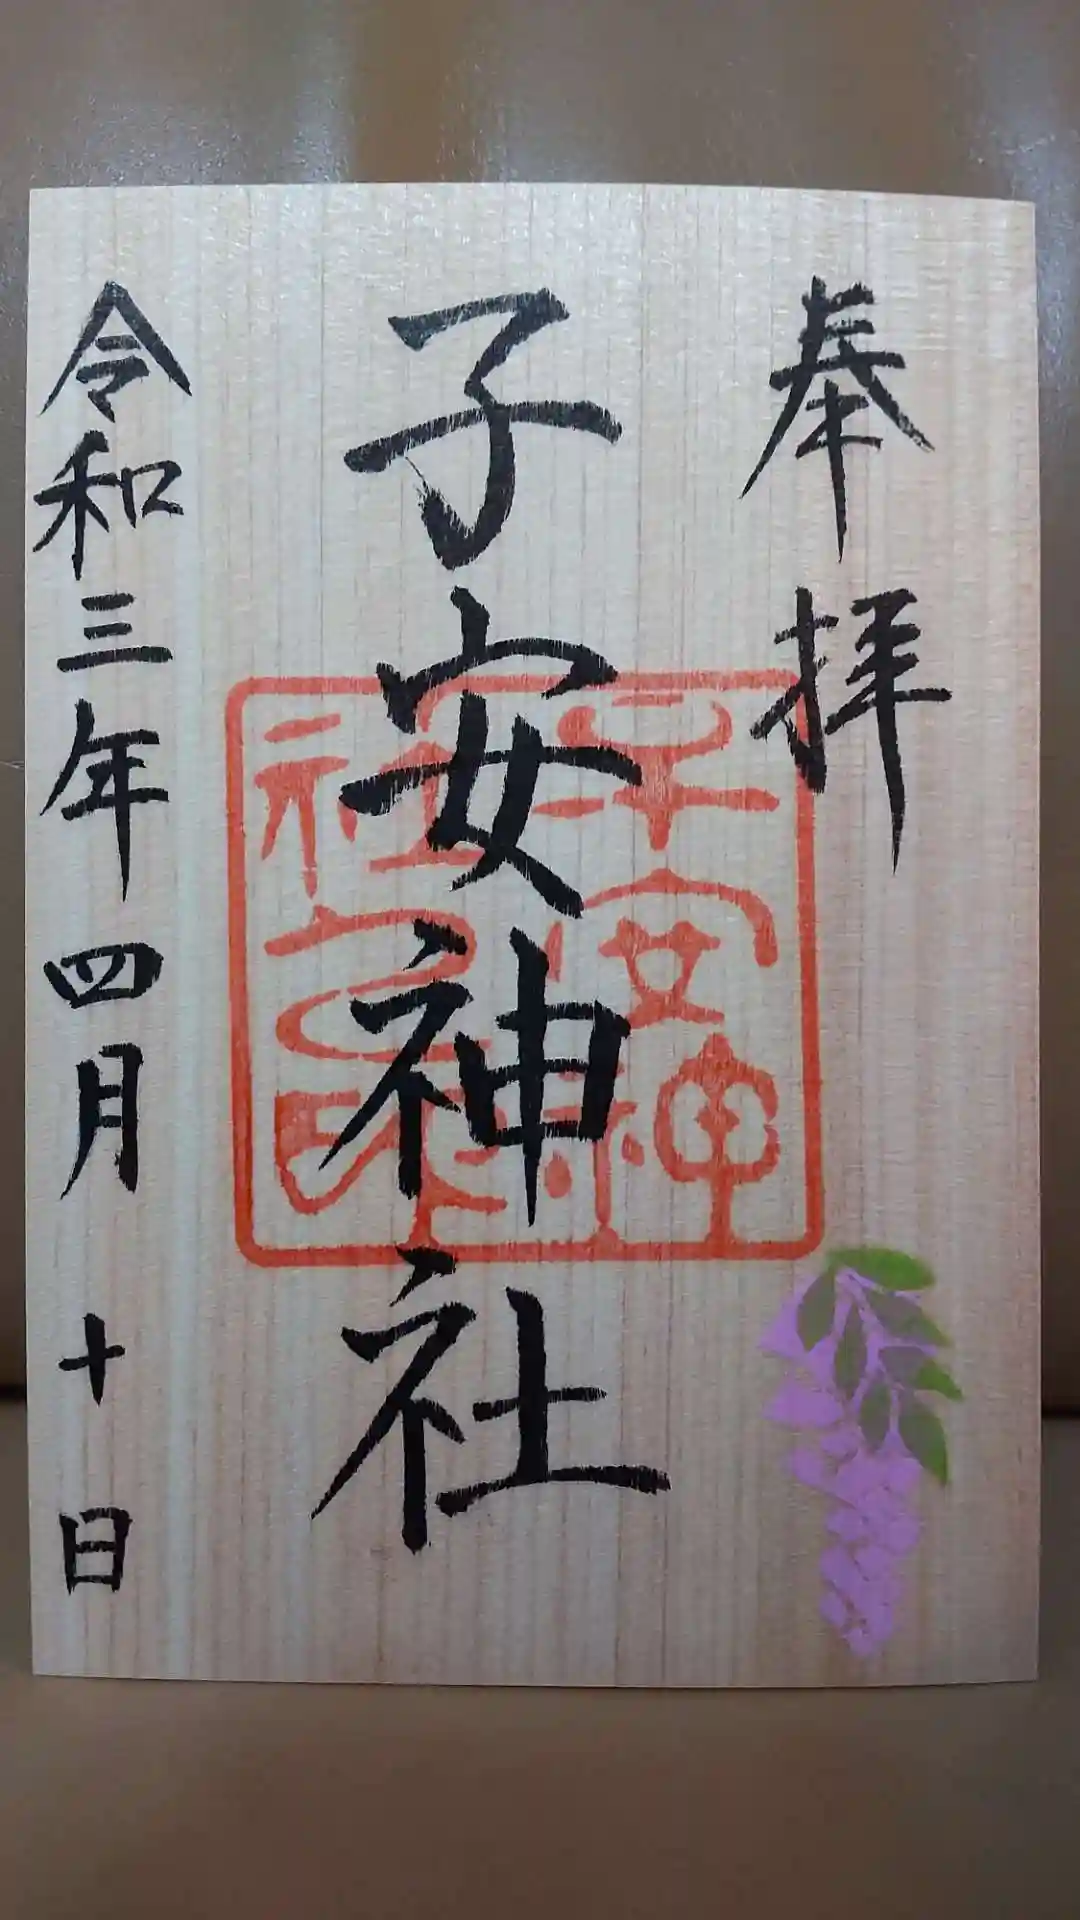 奉拝
子安神社
子安神社宮司印
令和三年四月十日